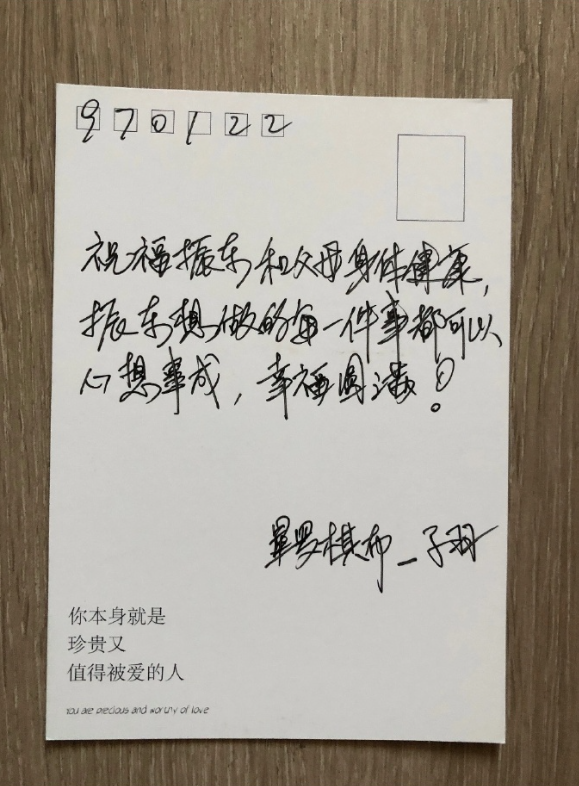 970122
祝福振东和父母身体健康，
振东想做的每一件事都可以
心想事成，幸福圆满！
星罗棋布_子羽
你本身就是
珍贵又
值得被爱的人
You are precious and worthy of love